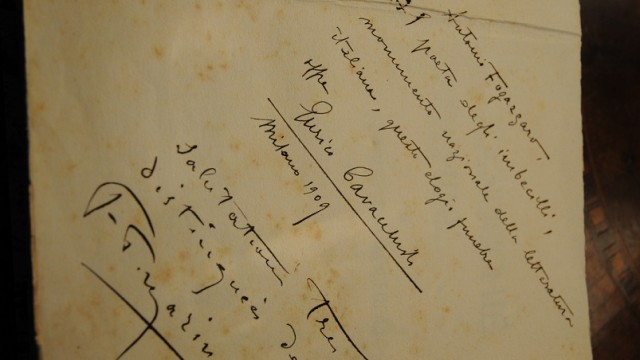 Antonio Fogazzaro,
poeta degli imbecilli,
monumento nazionale della letteratura
italiana, questo elogio funebre
offre
Enrico Cavacchioli
Milano 1909
Salutations Très
distinguées de
F. T. Marinetti